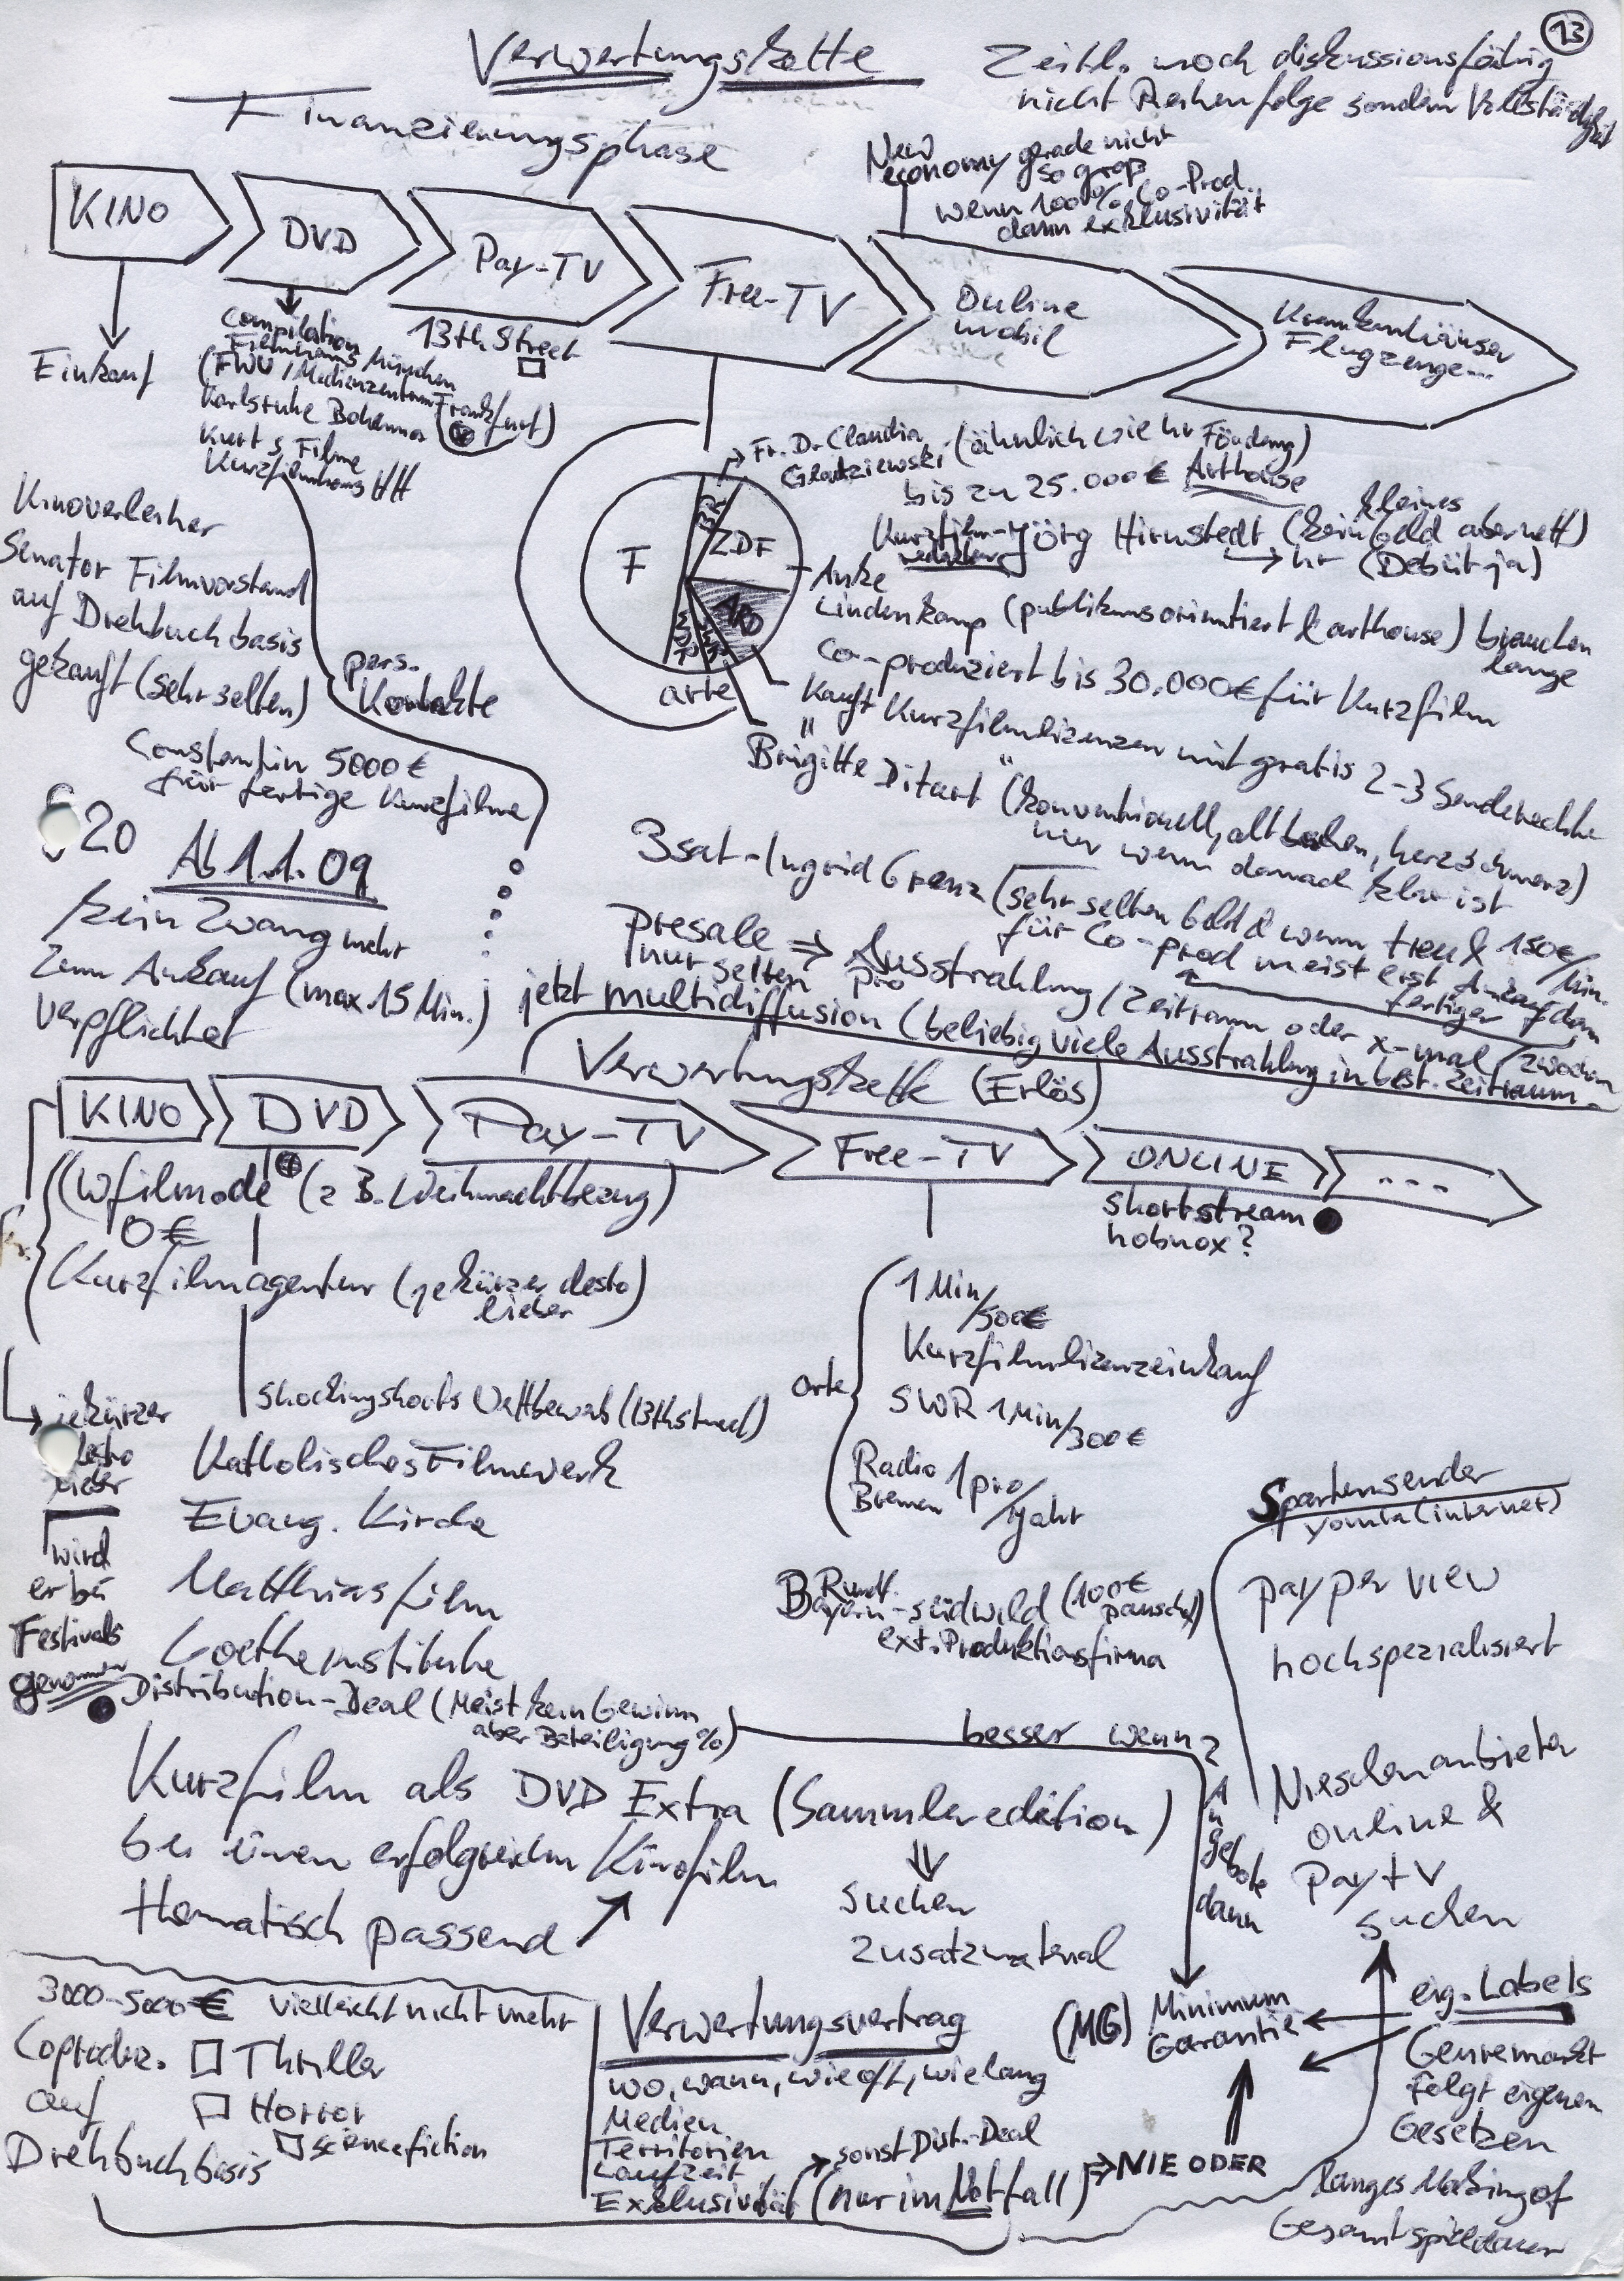 13
Verwertungskette
Zeitl. noch diskussionsfähig
nicht Reihenfolge sondern Vollständigkeit
Finanzierungsphase
New economy gerade nicht
so groß
wenn 100% Co-Prod.
dann exklusivität
KINO
DVD
Pay-TV
Free-TV
Online
mobil
Krankenhäuser
Flugzeuge...
Einkauf
Compilation
Filmhaus München
(FWU / Medienzentrum Frankfurt)
Karlsruhe
Kurt s Filme
Kurzfilmhaus HH
13th Street
Kinoverleiher
Senator Filmvorstand
auf Drehbuchbasis
gekauft (sehr selten)
pers.
Kontakte
Constantin 5000€
für fertige Kurzfilme
F
BR
ZDF
ARD
arte
Fr. D. Claudia
(ähnlich wie hr Förderung)
bis zu 25.000€ Arthouse
Kurzfilm-
Jörg Himstedt (kein Geld aber nett)
kleines
→ hr (Debüt ja)
Anke
Lindenkamp (publikumsorientiert & arthouse) brauchen
lange
Co-produziert bis 30.000€ für Kurzfilm
kauft Kurzfilmlizenzen mit gratis 2-3 Senderechte
" "
Brigitte Ditart (konventionell, altbacken, herzschmerz)
nur wenn danach klar ist
3sat - Ingrid Grenz (sehr selten Geld & wenn treu & 150€/Min.
für Co-prod meist erst Ankauf dann
fertiger
20
Ab 1.1.09
kein Zwang mehr
zum Ankauf (max. 15 Min.)
verpflichtet
presale
nur selten
⇒ Ausstrahlung / Zeitraum oder x-mal /
pro
jetzt multidiffusion (beliebig viele Ausstrahlung in best. Zeitraum
Verwertungskette (Erlös)
KINO
DVD
Pay-TV
Free-TV
ONLINE
...
shortstream
hobnox?
(Wfilmode (z B. Weihnachtbezug)
0€
Kurzfilmagentur (je kürzer desto
lieber)
→ je kürzer
desto
lieber
wird
er bei
Festivals
genommen
Shockingshorts Wettbewerb (13thstreet)
Katholisches Filmwerk
Evang. Kirche
Matthiasfilm
Goetheinstitute
Distribution-Deal (Meist kein Gewinn
aber Beteiligung %)
arte
1 Min/500€
Kurzfilmlizenzeinkauf
SWR 1 Min/300€
Radio
Bremen
1 pro/Jahr
Bayern Rundf.-südwild (100€
pauschal)
ext. Produktionsfirma
Spartensender
(internet)
pay per view
hochspezialisiert
Nieschenanbieter
online &
Pay tv
suchen
besser wenn 2
Angebote
dann
Kurzfilm als DVD Extra (Sammleredition)
bei einen erfolgreichen Kinofilm
thematisch passend
⇓
suchen
zusatzmaterial
3000-5000€ vielleicht nicht mehr
Coproduz.
auf
Drehbuchbasis
Thriller
Horror
sciencefiction
Verwertungsvertrag
wo, wann, wie oft, wie lang
Medien
Territorien
Laufzeit
Exklusivität
→ sonst Dist.-Deal
(nur im Notfall)
⇒ NIE ODER
(MG) Minimum
Garantie
eig. Labels
Genremarkt
folgt eigenen
Gesetzen
langes Making of
Gesamtspieldauer